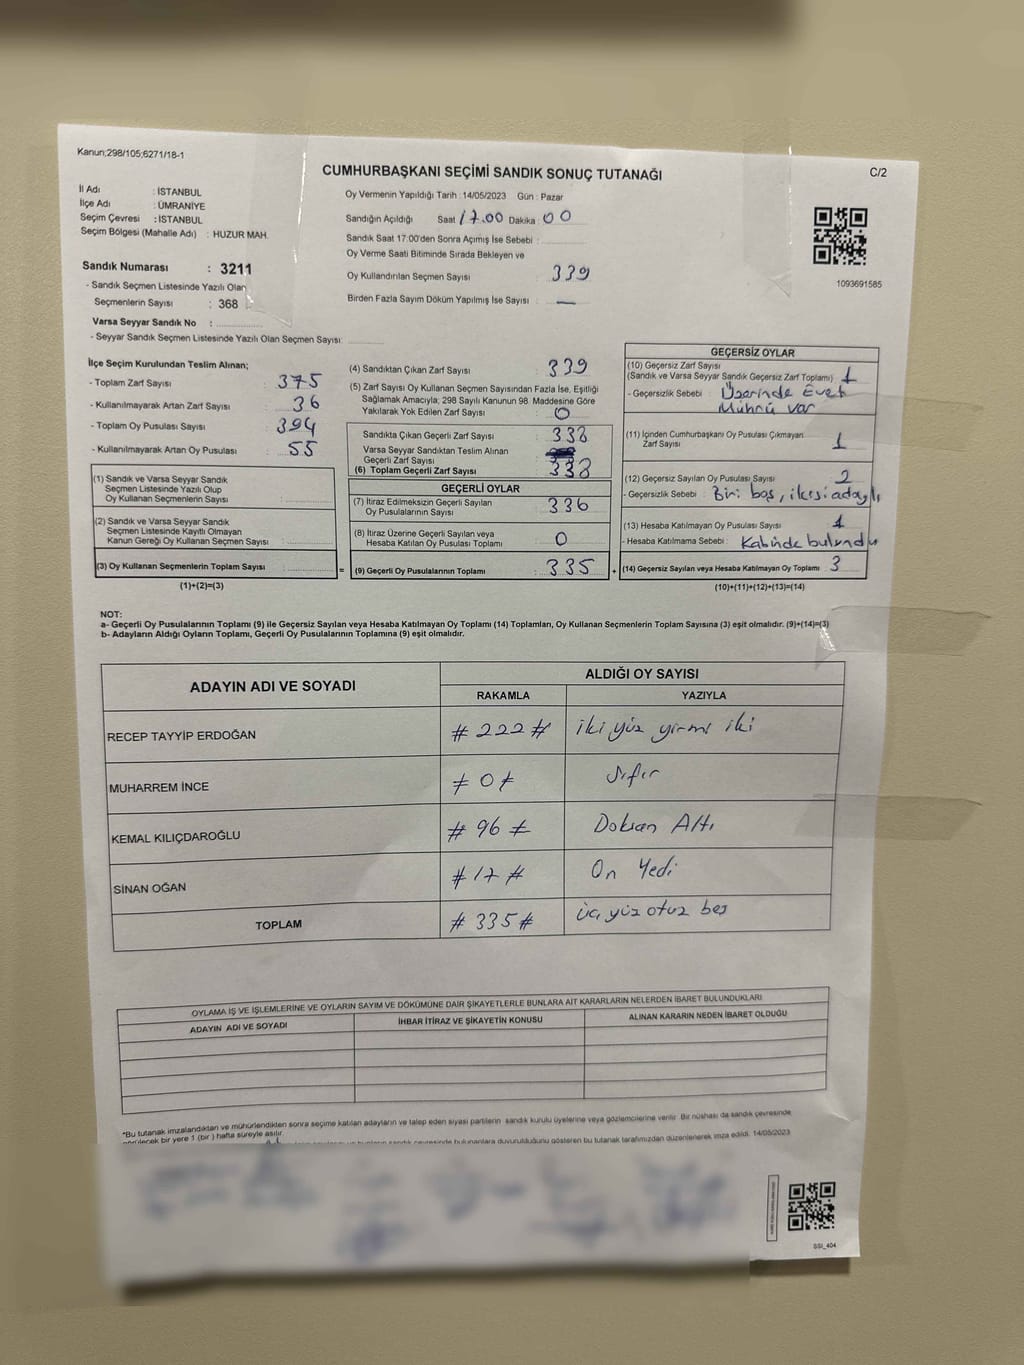 Kanun;298/105;6271/18-1
CUMHURBAŞKANI SEÇİMİ SANDIK SONUÇ TUTANAĞI
C/2
İl Adı : İSTANBUL
İlçe Adı : ÜMRANİYE
Seçim Çevresi : İSTANBUL
Seçim Bölgesi (Mahalle Adı) : HUZUR MAH.
Oy Vermenin Yapıldığı Tarih : 14/05/2023 Gün : Pazar
Sandığın Açıldığı Saat 17.00 Dakika : 00
Sandık Saat 17:00'den Sonra Açımış İse Sebebi :
Oy Verme Saati Bitiminde Sırada Bekleyen ve
Oy Kullandırılan Seçmen Sayısı : 339
Birden Fazla Sayım Döküm Yapılmış İse Sayısı : —
1093691585
Sandık Numarası : 3211
- Sandık Seçmen Listesinde Yazılı Olan
Seçmenlerin Sayısı : 368
Varsa Seyyar Sandık No :
- Seyyar Sandık Seçmen Listesinde Yazılı Olan Seçmen Sayısı:
İlçe Seçim Kurulundan Teslim Alınan;
- Toplam Zarf Sayısı : 375
- Kullanılmayarak Artan Zarf Sayısı : 36
- Toplam Oy Pusulası Sayısı : 394
- Kullanılmayarak Artan Oy Pusulası : 55
(1) Sandık ve Varsa Seyyar Sandık
Seçmen Listesinde Yazılı Olup
Oy Kullanan Seçmenlerin Sayısı :
(2) Sandık ve Varsa Seyyar Sandık
Seçmen Listesinde Kayıtlı Olmayan
Kanun Gereği Oy Kullanan Seçmen Sayısı :
(3) Oy Kullanan Seçmenlerin Toplam Sayısı :
(1)+(2)=(3)
(4) Sandıktan Çıkan Zarf Sayısı : 339
(5) Zarf Sayısı Oy Kullanan Seçmen Sayısından Fazla İse, Eşitliği
Sağlamak Amacıyla; 298 Sayılı Kanunun 98. Maddesine Göre
Yakılarak Yok Edilen Zarf Sayısı : 0
Sandıkta Çıkan Geçerli Zarf Sayısı : 338
Varsa Seyyar Sandıktan Teslim Alınan
Geçerli Zarf Sayısı
(6) Toplam Geçerli Zarf Sayısı : 338
GEÇERLİ OYLAR
(7) İtiraz Edilmeksizin Geçerli Sayılan
Oy Pusulalarının Sayısı : 336
(8) İtiraz Üzerine Geçerli Sayılan veya
Hesaba Katılan Oy Pusulası Toplamı : 0
(9) Geçerli Oy Pusulalarının Toplamı : 335
GEÇERSİZ OYLAR
(10) Geçersiz Zarf Sayısı
(Sandık ve Varsa Seyyar Sandık Geçersiz Zarf Toplamı) : 1
- Geçersizlik Sebebi : Üzerinde Evet
Mührü var
(11) İçinden Cumhurbaşkanı Oy Pusulası Çıkmayan
Zarf Sayısı : 1
(12) Geçersiz Sayılan Oy Pusulası Sayısı : 2
- Geçersizlik Sebebi : Biri boş, ikisi adaylı
(13) Hesaba Katılmayan Oy Pusulası Sayısı : 1
- Hesaba Katılmama Sebebi : Kabinde bulundu
(14) Geçersiz Sayılan veya Hesaba Katılmayan Oy Toplamı : 3
(10)+(11)+(12)+(13)=(14)
NOT:
a- Geçerli Oy Pusulalarının Toplamı (9) ile Geçersiz Sayılan veya Hesaba Katılmayan Oy Toplamı (14) Toplamları, Oy Kullanan Seçmenlerin Toplam Sayısına (3) eşit olmalıdır. (9)+(14)=(3)
b- Adayların Aldığı Oyların Toplamı, Geçerli Oy Pusulalarının Toplamına (9) eşit olmalıdır.
ADAYIN ADI VE SOYADI
ALDIĞI OY SAYISI
RAKAMLA YAZIYLA
RECEP TAYYİP ERDOĞAN # 222 # iki yüz yirmi iki
MUHARREM İNCE # 0 # sıfır
KEMAL KILIÇDAROĞLU # 96 # Doksan Altı
SİNAN OĞAN # 17 # On Yedi
TOPLAM # 335 # üç yüz otuz beş
OYLAMA İŞ VE İŞLEMLERİNE VE OYLARIN SAYIM VE DÖKÜMÜNE DAİR ŞİKAYETLERLE BUNLARA AİT KARARLARIN NELERDEN İBARET BULUNDUKLARI
ADAYIN ADI VE SOYADI İHBAR İTİRAZ VE ŞİKAYETİN KONUSU ALINAN KARARIN NEDEN İBARET OLDUĞU
*Bu tutanak imzalandıktan ve mühürlendikten sonra seçime katılan adayların ve talep eden siyasi partilerin sandık kurulu üyelerine veya gözlemcilerine verilir. Bir nüshası da sandık çevresinde
görülecek bir yere 1 (bir) hafta süreyle asılır.
bulunanlara duyurulduğunu gösteren bu tutanak tarafımızdan düzenlenerek imza edildi. 14/05/2023
SSI_404